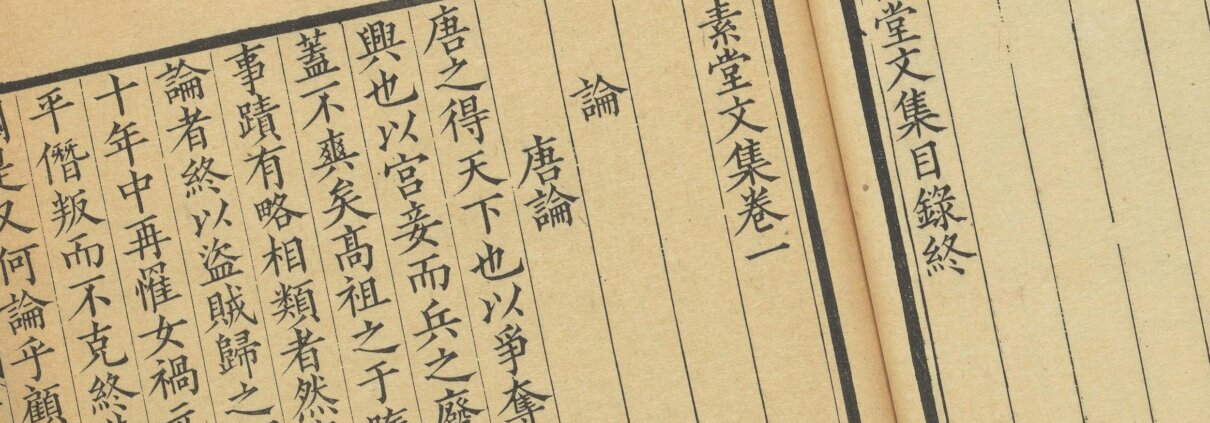 堂文集目錄終
素堂文集卷一
論
唐論
唐之得天下也以爭奪
興也以宮妾而兵之廢
蓋不爽矣高祖之于隋
事蹟有略相類者然
論者終以盜賊歸之
十年中再罹女禍
平僭叛而不克終
又何論乎顧